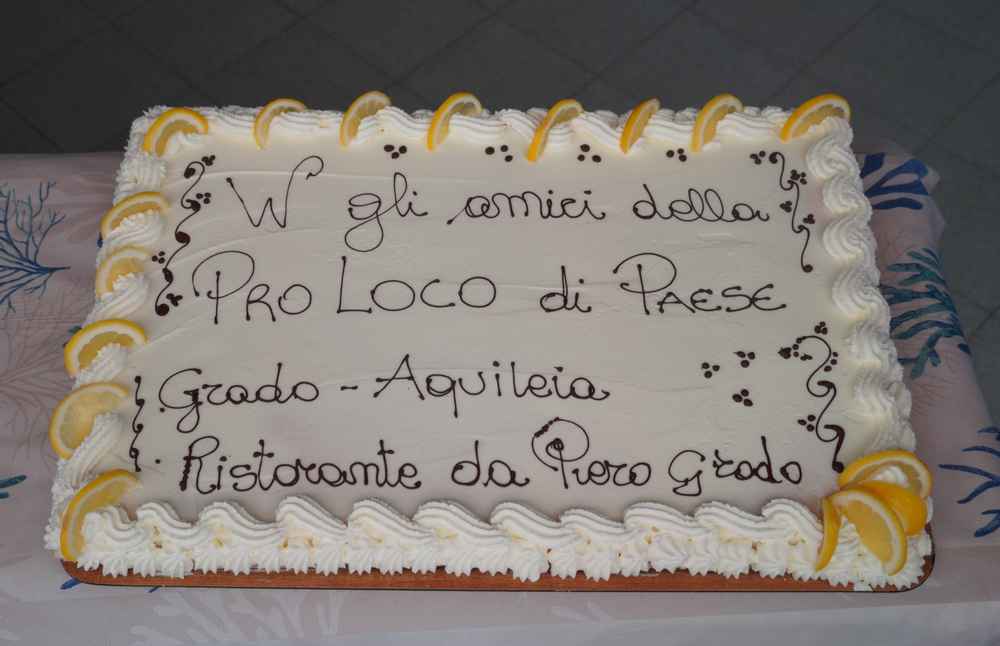 W gli amici della
PRO LOCO di PAESE
Grado - Aquileia
Ristorante da Piero Grado